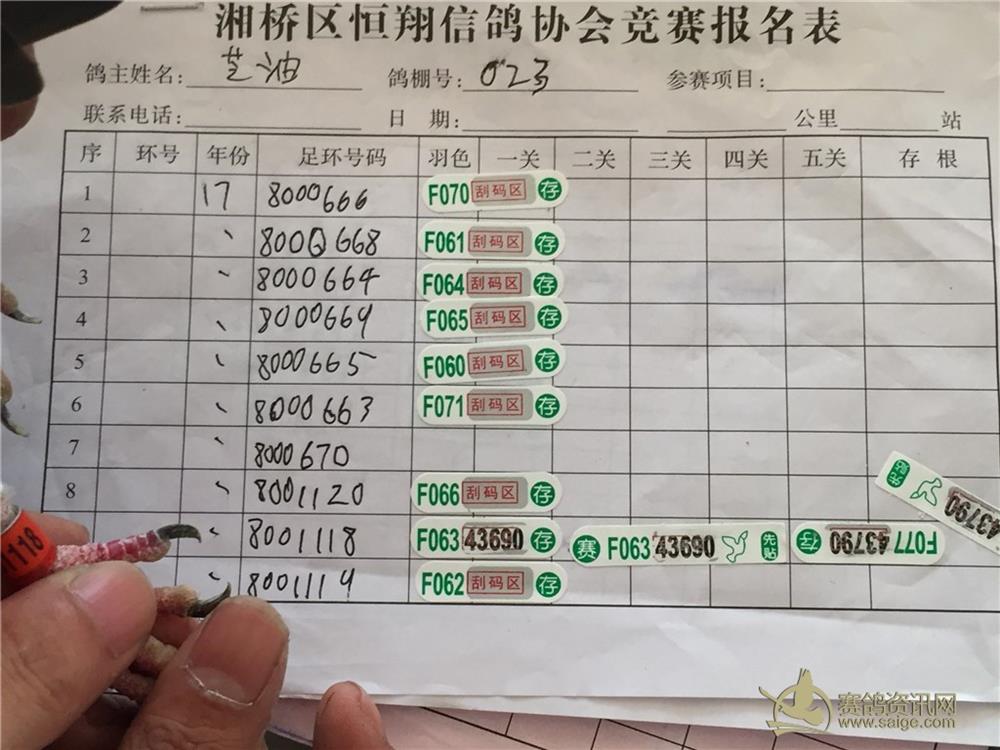 湘桥区恒翔信鸽协会竞赛报名表
鸽主姓名: 芝油 鸽棚号: 023 参赛项目:
联系电话: 日 期: 公里 站
序 环号 年份 足环号码 羽色 一关 二关 三关 四关 五关 存 根
1 17 8000666 F070 刮码区 存
2 、 8000668 F061 刮码区 存
3 、 8000664 F064 刮码区 存
4 、 8000669 F065 刮码区 存
5 、 8000665 F060 刮码区 存
6 、 8000663 F071 刮码区 存
7 、 8000670
8 、 8001120 F066 刮码区 存
、 8001118 F063 43690 存 赛 F063 43690 先贴 存 43790 F077
、 8001119 F062 刮码区 存
43790
1118
赛鸽资讯网
www.saige.com